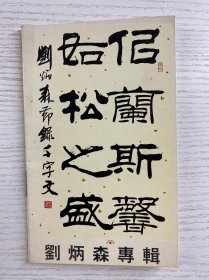 似蘭斯馨
如松之盛
劉炳森節録千字文
劉炳森專輯